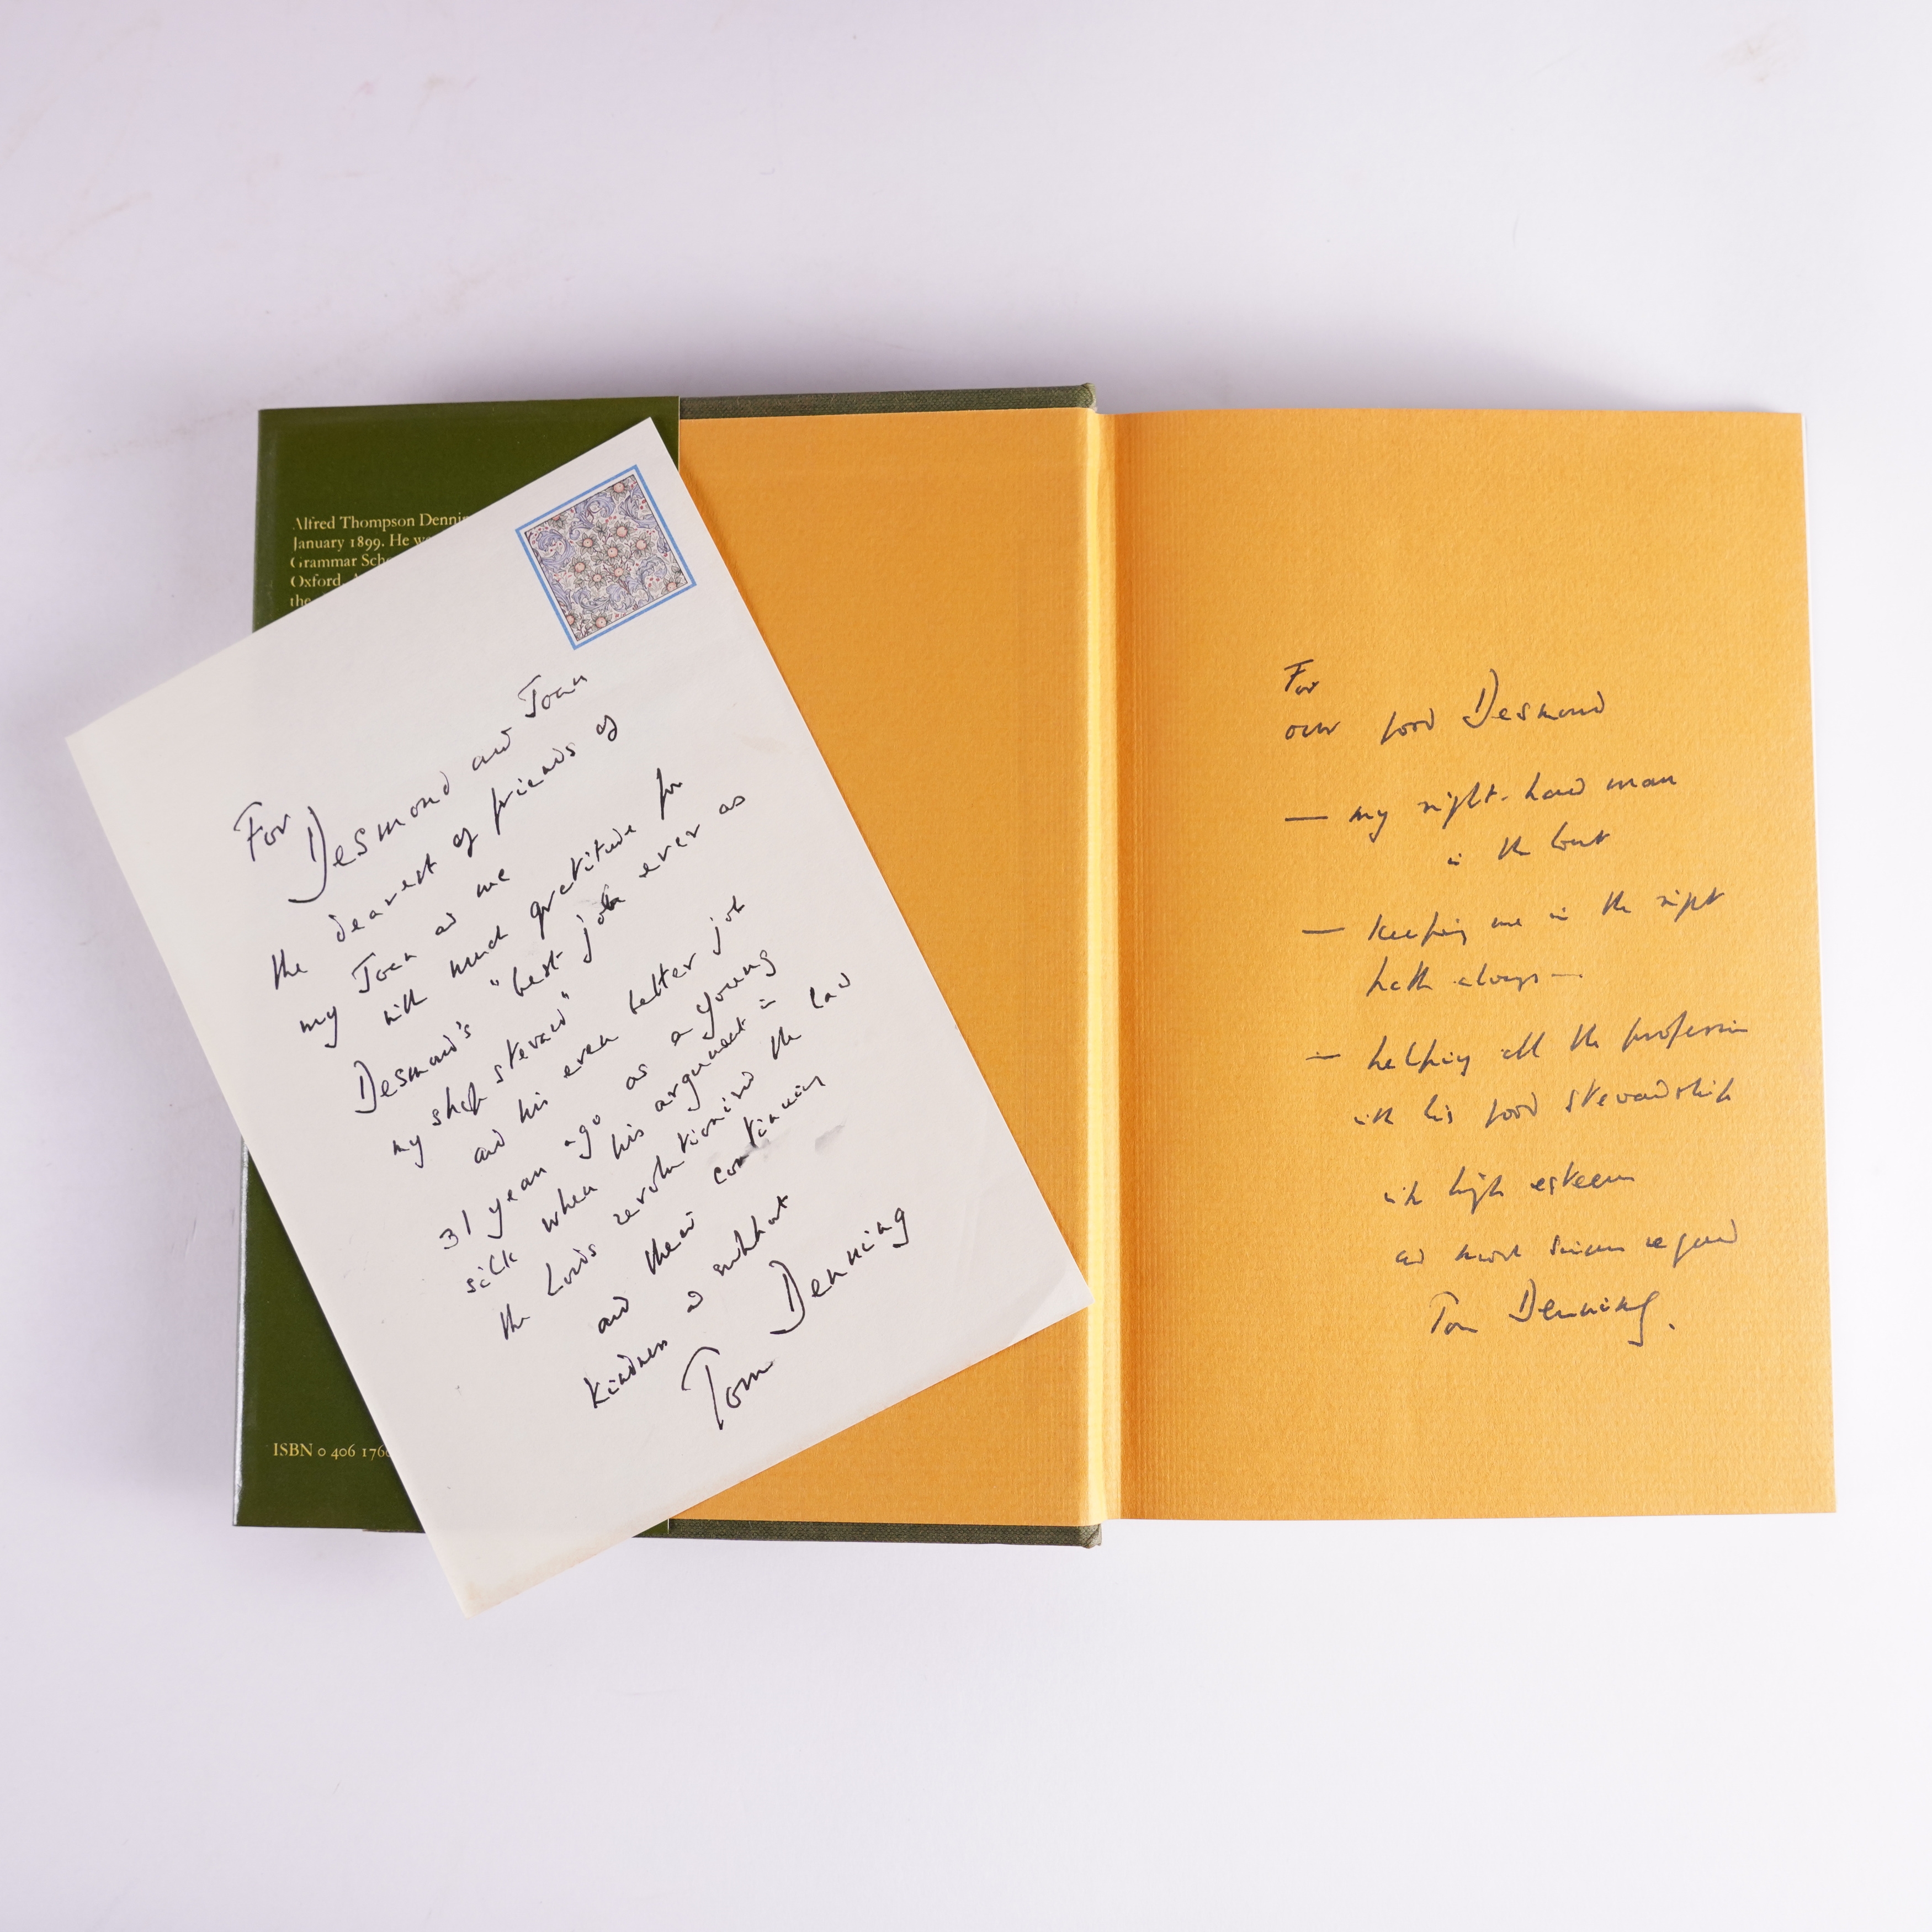 Alfred Thompson Denni
January 1899. He w
Grammar Sch
Oxford. A
the
ISBN 0 406 176
For Desmond and Joan
the dearest of friends of
my Joan and me
with much gratitude for
Desmond's "best job ever as
my shop steward"
and his even better job
31 years ago as a young
silk when his argument in
the Lords revolutionised the law
and their continuing
kindness and support
Tom Denning
For
our good Desmond
— my right-hand man
in the Court
— keeping me in the right
path always —
— helping all the profession
with his good stewardship
with high esteem
and most sincere regard
Tom Denning.